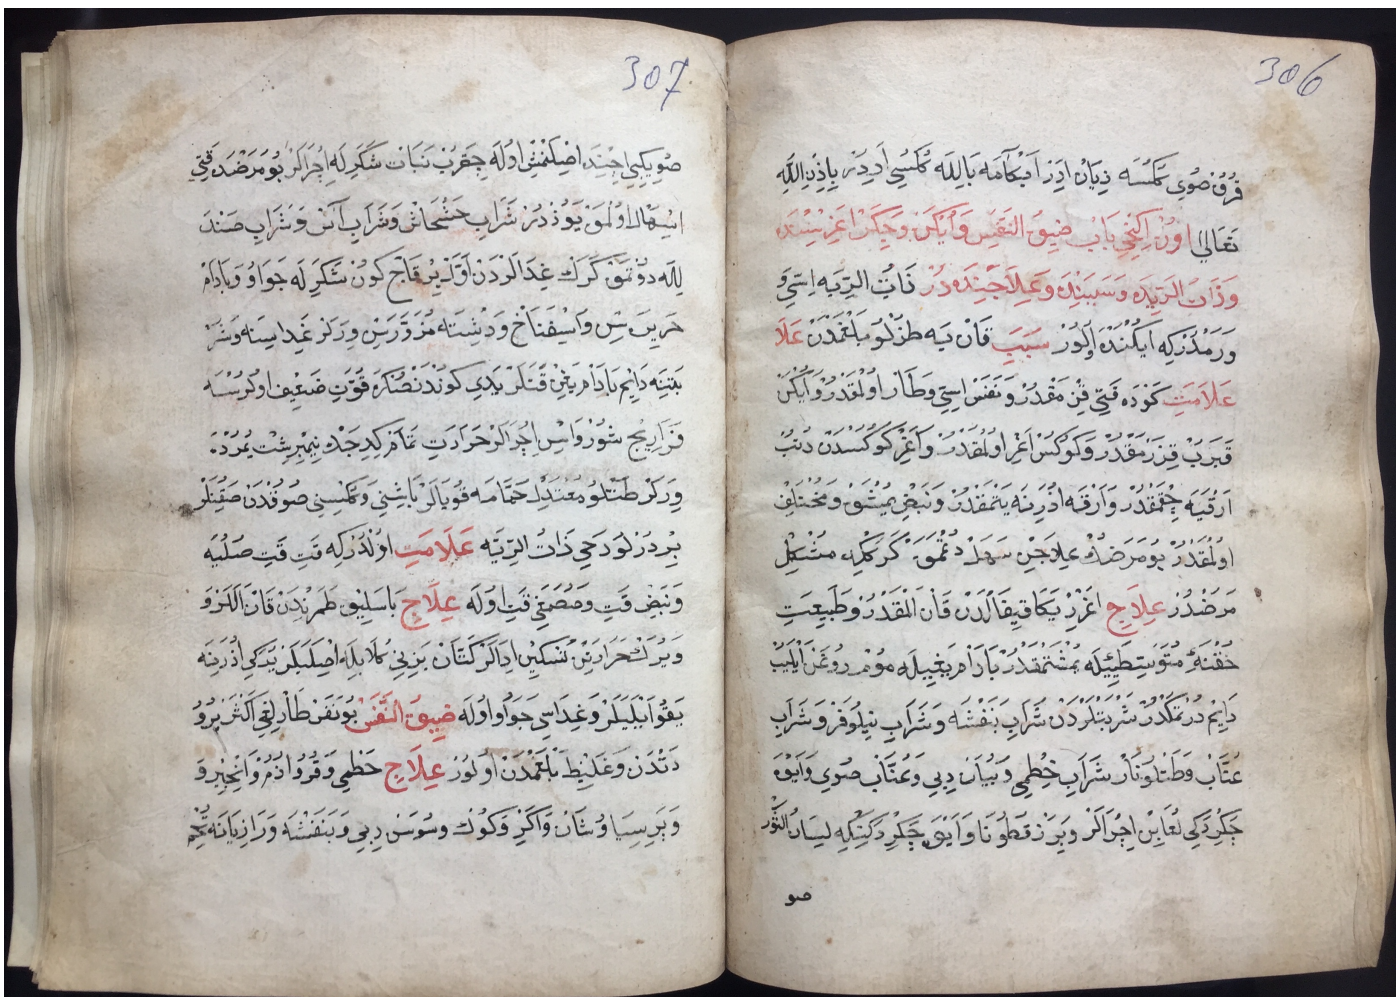 306
قرق صوی کمسه زیان ادر امکامه بالله کمسی ادر باذن الله
تعالی اون اکنجی باب ضیق النفس وایکن وجکر اغریسنده
وذات الریه وسببنده وعلاجنده در ذات الریه اسی و
ورمدرکه ایکنده اولور سبب قان یه طزلو بلغمدن علا
علامت کوده قتی قزمقدر ونفس اسی وطار اولمقدر وایکن
قبرب قزرمقدر وکوکس اغر اولمقدر واغز کوکسدن
ارقیه چقمقدر وارقه اذرنه یتمقدر ونبض ومختلف
اولمقدر بو مرضك علاجن سهل دتمق کرکمکه مشکل
مرضدر علاج قیفالدن قان المقدر وطبیعت
حقنۀ متوسطیله یمشتمقدر بادام یغیله موم روغن ایلیب
دایم درتمکدر شربتلردن شراب بنفشه وشراب نیلوفر وشراب
عناب وطتلونار شراب خطمی وبیان دبی وعناب صوی وایوه
چکردکی لعابن اجرالر وبزر قطونا وایوه چکردکنکه لسان الثور
صو
307
صویکبی اچنده اصلنمش اوله چقرب نبات شکرله اجرالر بو مرضده قتی
اسهال اولمق یوذدر شراب خشخاش وشراب آس وشراب صند
لله دوتمق کرك غدالردن اول بر قاچ کون شکرله جواو وبادام
حریرسن واسفناخ ودشته مزورسن ورلر غداسنه وشر
بتینه دایم بادام یغن قتلر یدی کوندنصکره قوت ضعیف اولرسه
فراریج شورواسن اجرالر حرارت تمام کدجك نیمبرشت یمرده
ورلر طتلو معتدل حمامه قویالر باشنی وکمسنی صوقدن صقنلر
بر درلو دخی ذات الریه علامت اولدرکه قت قت صلیه
ونبض قت وصصغی قت اوله علاج باسلیق طمرندن قان اللر و
ویرك حرارتن تسکین ادالر کتان بزنی کلابله اصلیلر یرکی اذرنه
یقو ایلیلر وغداسی جواو اوله ضیق النفس بو نفس طارلغی اکثر برو
دتدن وغلیظ بلغمدن اولور علاج خطمی وقرو اذم وانجیر و
وپرسیاوشان واکر وکوك وسوسن دبی وبنفشه ورازیانه تخم